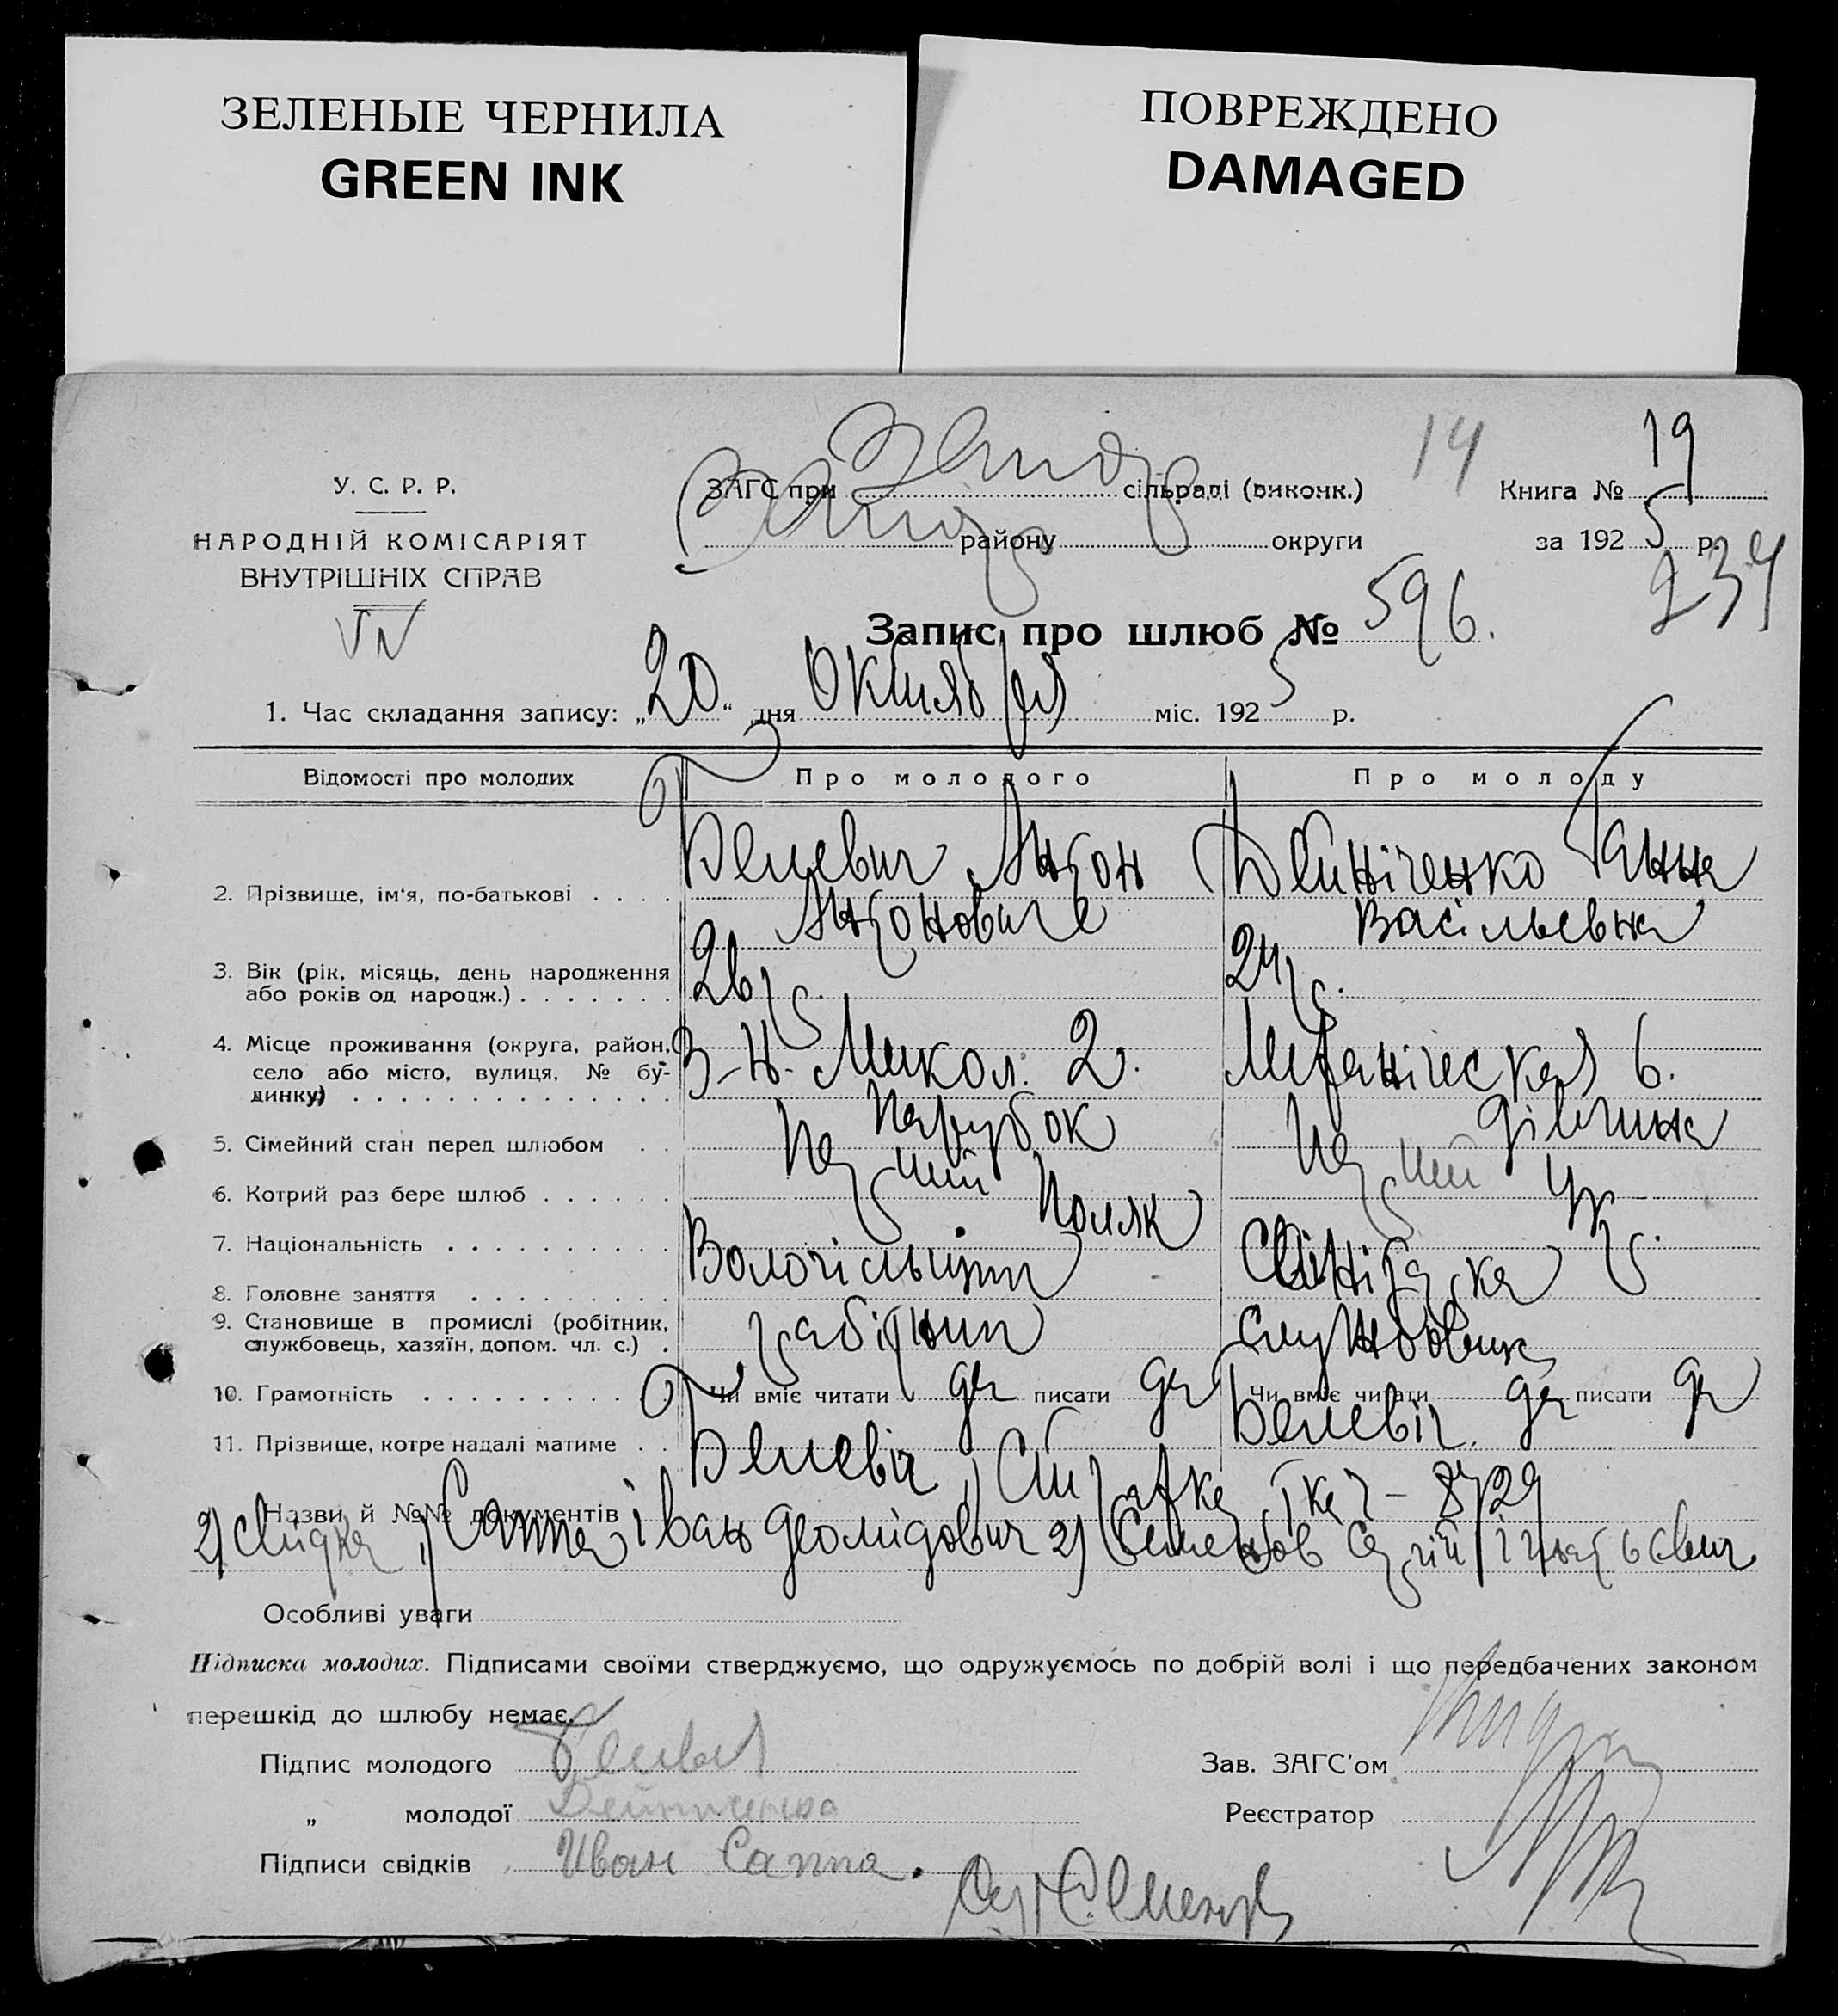 ЗЕЛЕНЫЕ ЧЕРНИЛА
GREEN INK
ПОВРЕЖДЕНО
DAMAGED
14
19
У. С. Р. Р.
НАРОДНІЙ КОМІСАРІЯТ
ВНУТРІШНІХ СПРАВ
ЗАГС при сільраді (виконк.)
району округи
Книга №
за 1925 р.
234
Запис про шлюб № 596.
1. Час складання запису: „20“ дня Октября міс. 1925 р.
Відомості про молодих Про молодого Про молоду
2. Прізвище, ім'я, по-батькові . . . . Белевич Антон Дейніченко Ганна
Антонович Васільевна
3. Вік (рік, місяць, день народження
або років од народж.) . . . . . . . 26 р. 24 р.
4. Місце проживання (округа, район,
село або місто, вулиця, № бу-
динку) . . . . . . . . . . . . . . З-Н. Микол. 2. 6.
5. Сімейний стан перед шлюбом . . Парубок Дівчина
6. Котрий раз бере шлюб . . . . . . Перший Перший
7. Національність . . . . . . . . . . Поляк Укр.
8. Головне заняття . . . . . . . . .
9. Становище в промислі (робітник,
службовець, хазяїн, допом. чл. с.) . робітник
10. Грамотність . . . . . . . . . Чи вміє читати да писати да Чи вміє читати да писати да
11. Прізвище, котре надалі матиме . . Белевіч Белевіч.
Назви й №№ документів
2) свидки 1) Саппа Іван 2) Семенов Сергій
Особливі уваги
Підписка молодих. Підписами своїми стверджуємо, що одружуємось по добрій волі і що передбачених законом
перешкід до шлюбу немає.
Підпис молодого
Зав. ЗАГС'ом
„ молодої
Реєстратор
Підписи свідків Иван Саппа.